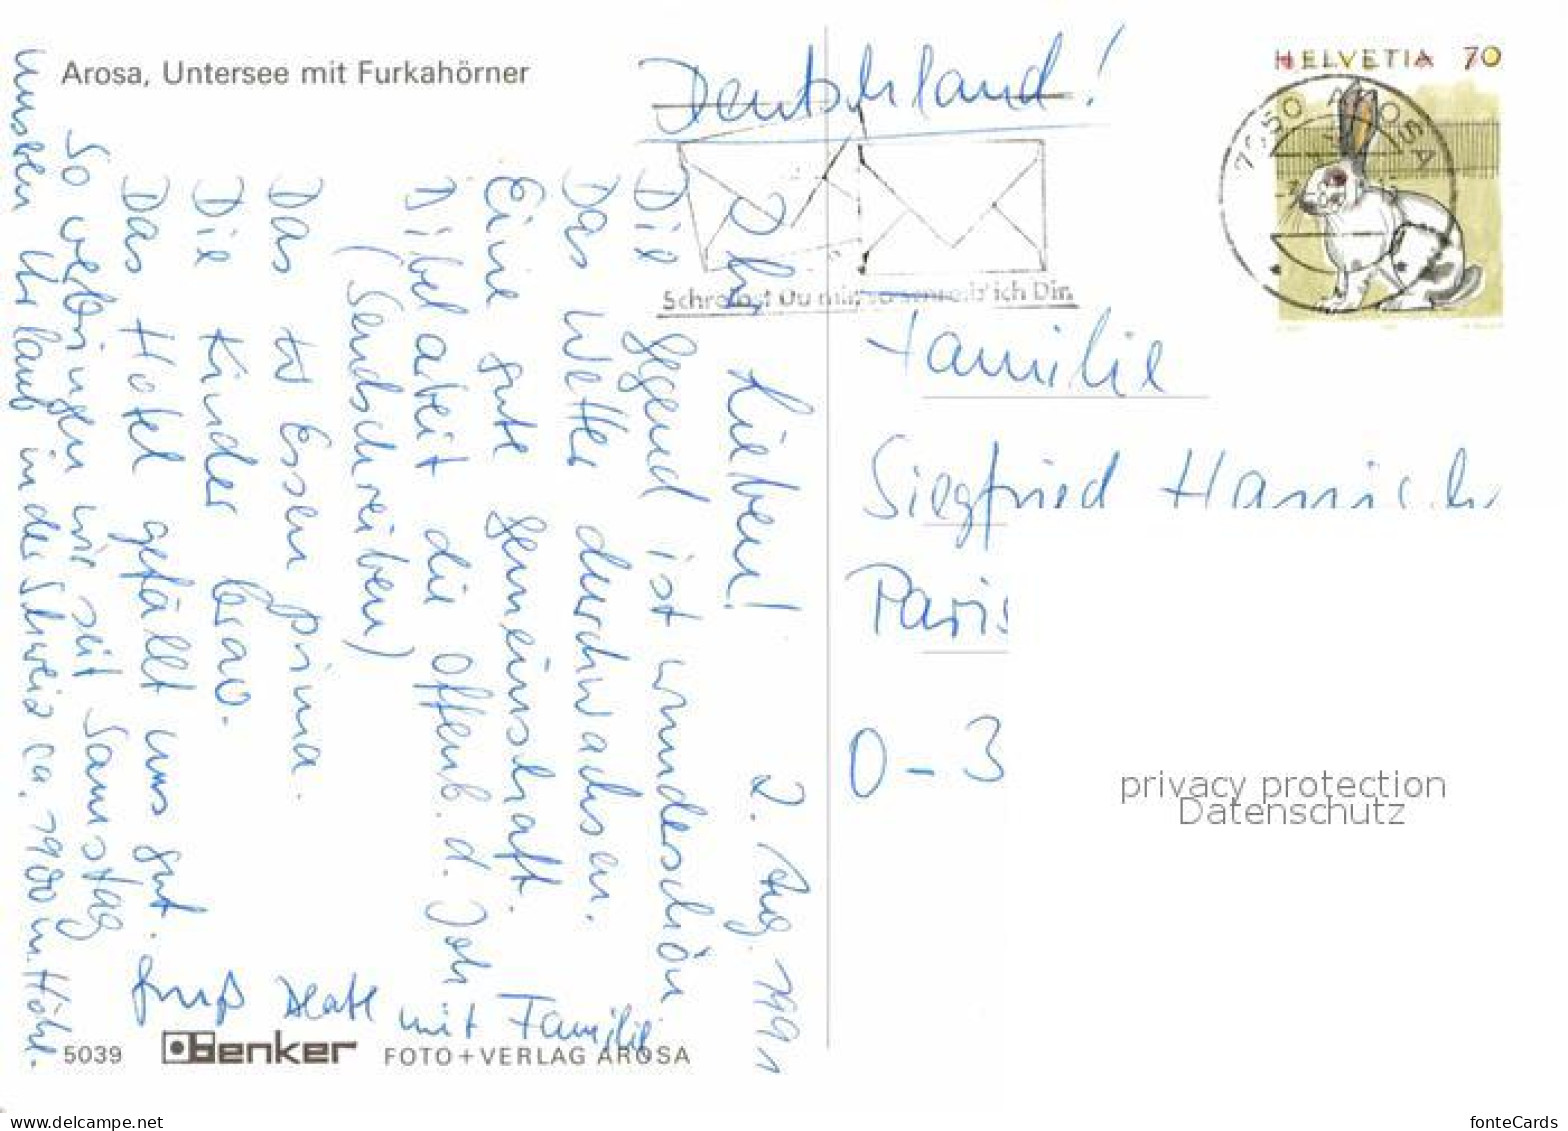 Arosa, Untersee mit Furkahörner
Deutschland!
HELVETIA 70
7050 AROSA
Schreibst Du mir, so schreib' ich Dir.
2. Aug. 1991
Ihr Lieben!
Die Gegend ist wunderschön
Das Wetter durchwachsen.
Eine gute Gemeinschaft.
Bibelarbeit die Offenb. d. Joh
(Sendschreiben)
Das Essen prima.
Die Kinder brav.
Das Hotel gefällt uns gut.
So verbringen wir seit Samstag
unseren Urlaub in der Schweiz ca. 1900 m. Höhe.
Gruß Beate mit Familie
Familie
Siegfried Hanisch
Paris
O-3
privacy protection
Datenschutz
5039 Benker FOTO+VERLAG AROSA
fonteCards